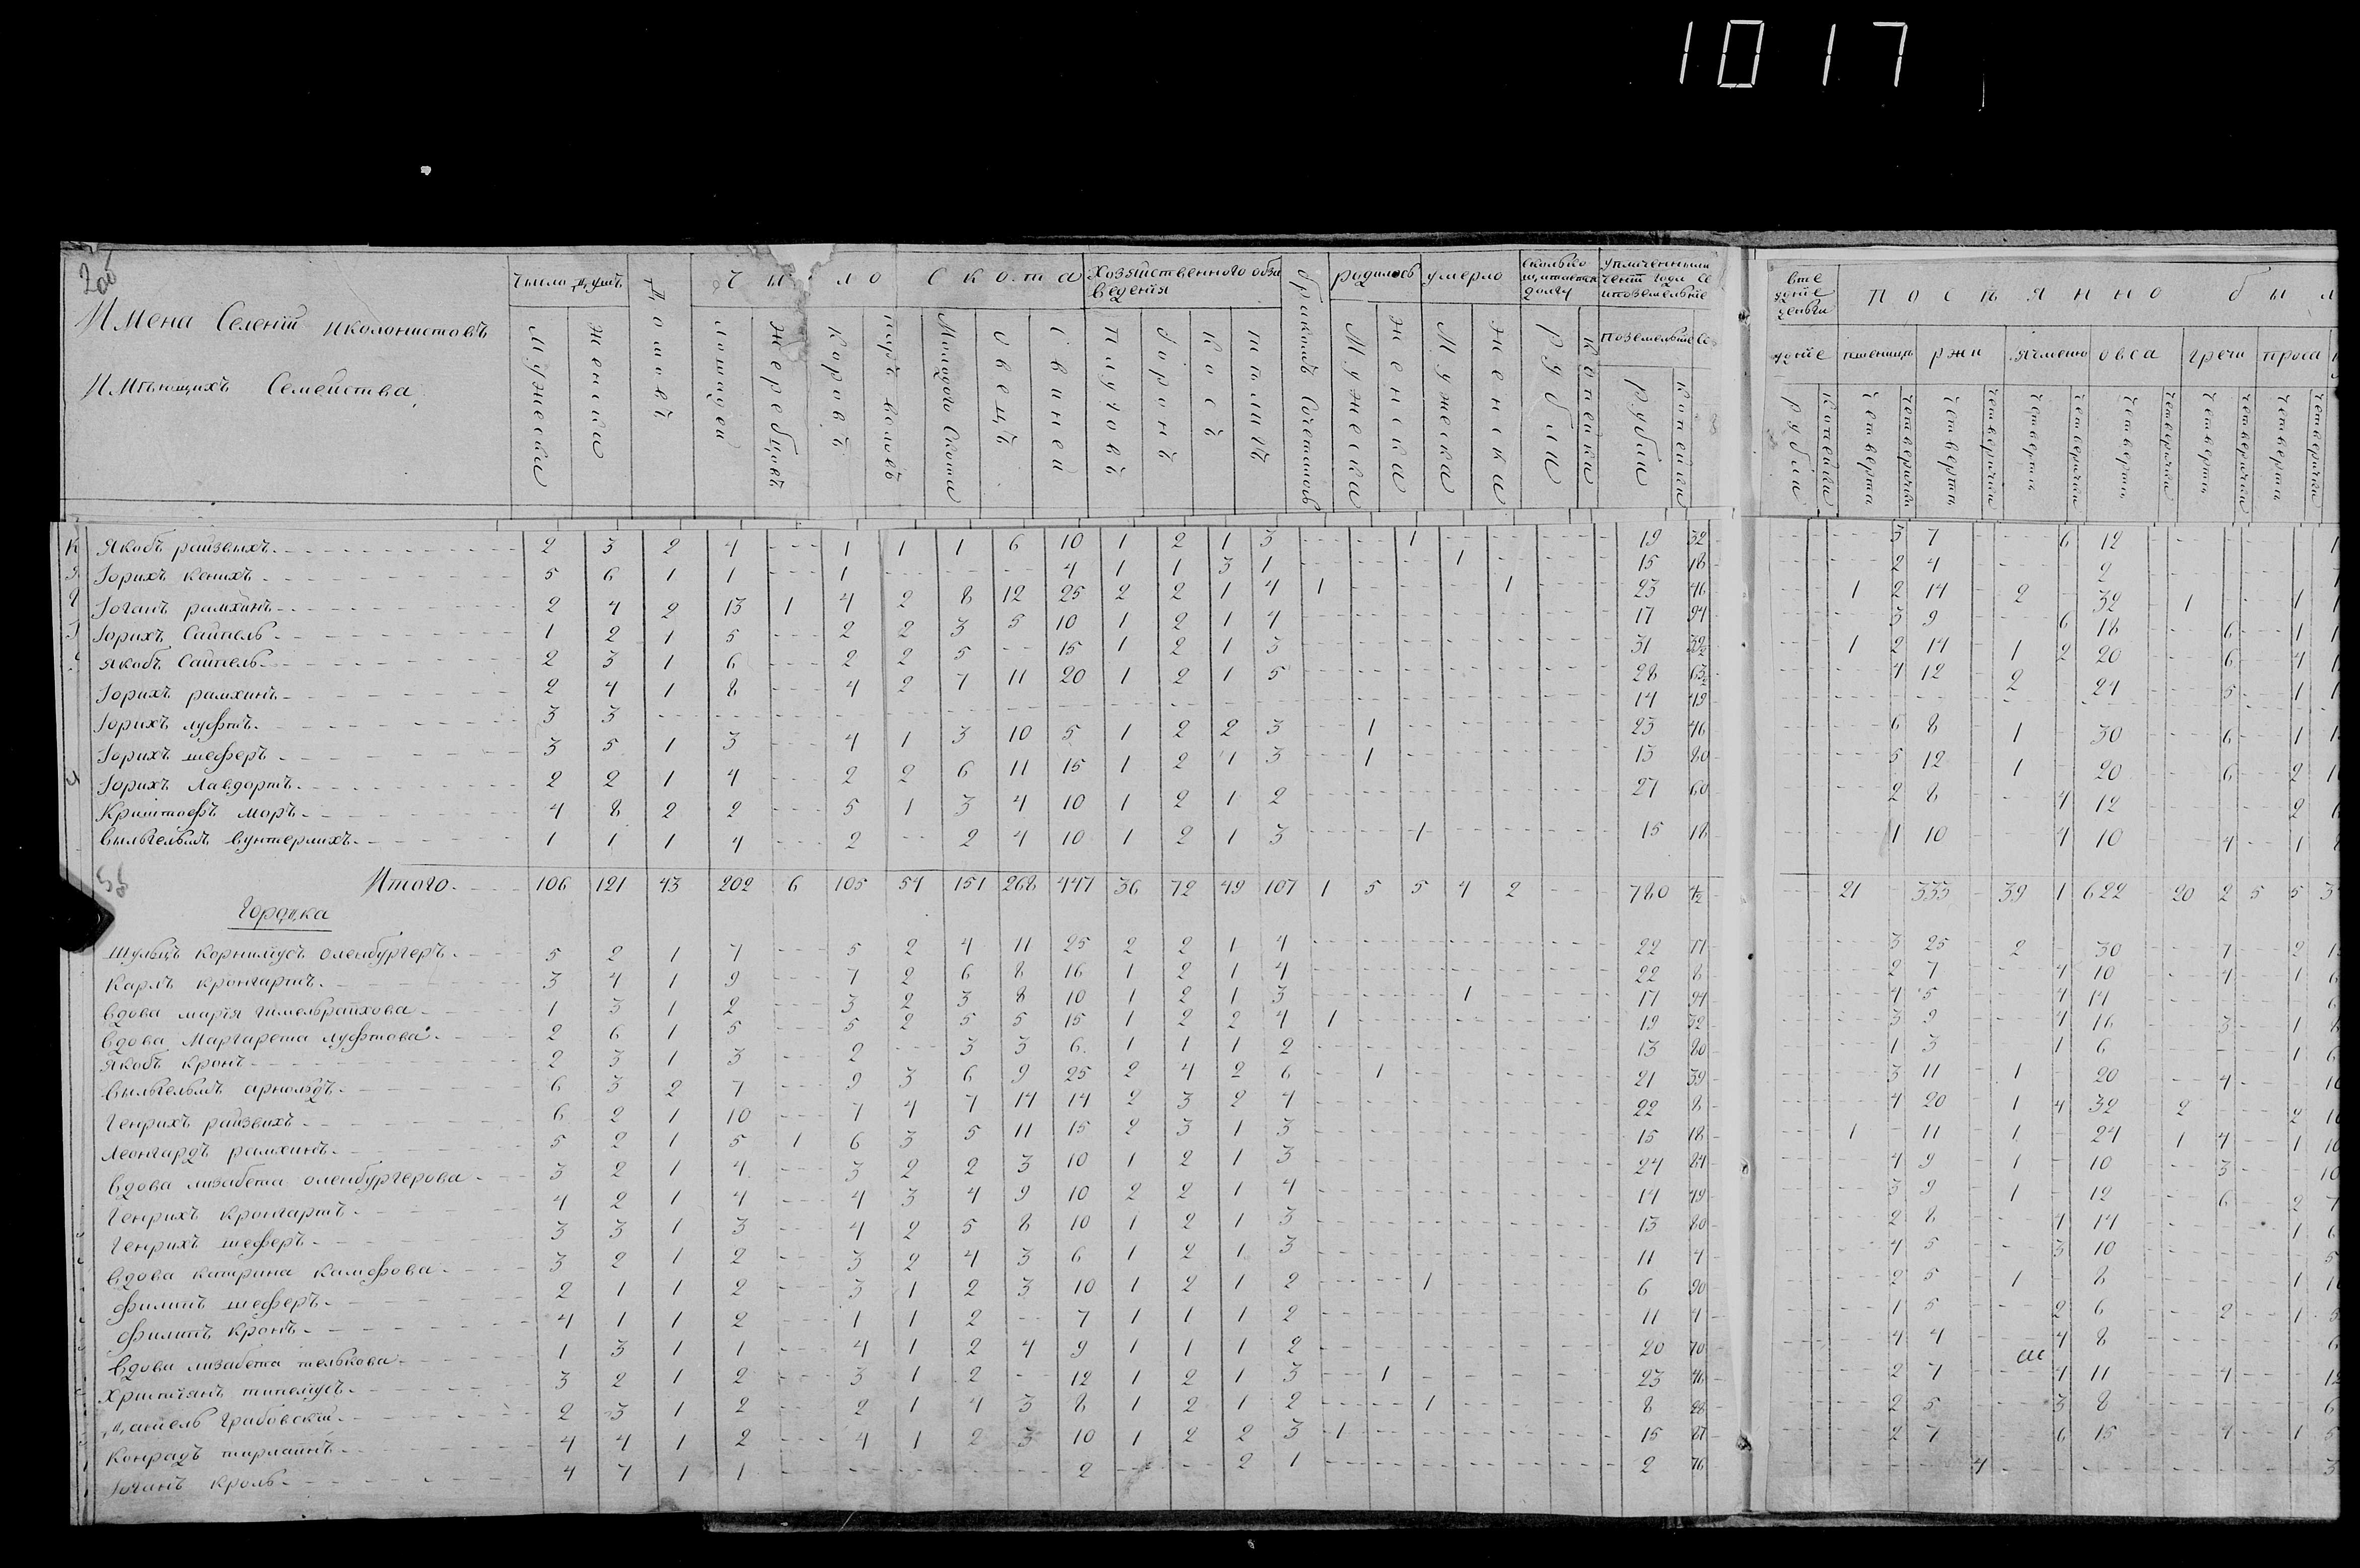 1017
200
Имена Селенiй иколонистовъ
Имѣющихъ Семейства
Число душъ
Мужеска
Женска
Домовъ
Число скота
Лошадей
Жеребцовъ
Коровъ
паръ воловъ
Молодого Скота
Овецъ
Свиней
Хозяйственного обза
ведения
Плуговъ
боронъ
Косъ
бракомъ Сочеталось
родилось
Мужеска
Женска
умерло
Мужеска
Женска
Сколько
долгу
рубли
копейка
поземельные
рубли
копейки
деньги
рубли
копейки
посѣянно был
пшеницы
четверти
четверички
ржи
четверти
четверички
ячменю
четверти
четверички
овса
четверти
четверички
гречи
четверти
четверички
проса
четверти
четверички
Якобъ райзвихъ 2 3 2 4 1 1 1 6 10 1 2 1 3 1 19 32 3 7 6 12
Iорихъ Кенихъ 5 6 1 1 1 4 1 1 3 1 1 15 18 2 4 2
Iоганъ рамхинъ 2 4 2 13 1 4 2 8 12 25 2 2 1 4 1 1 23 46 1 2 14 2 32 1 1 1
Iорихъ Сайпель 1 2 1 5 2 2 3 5 10 1 2 1 4 17 94 3 9 6 18 6 1 1
Якобъ Сайпель 2 3 1 6 2 2 5 15 1 2 1 3 31 1 2 14 1 2 20 6 4 1
Iорихъ рамхинъ 2 4 1 8 4 2 7 11 20 1 2 1 5 28 4 12 2 24 5 1 1
Iорихъ луфтъ 3 3 14 49
Iорихъ шеферъ 3 5 1 3 4 1 3 10 5 1 2 2 3 1 23 46 6 8 1 30 6 1
Iорихъ Лавдортъ 2 2 1 4 2 2 6 11 15 1 2 1 3 1 13 80 5 12 1 20 6 2
Криштофъ моръ 4 8 2 2 5 1 3 4 10 1 2 1 2 27 60 2 8 4 12 2
вильгельмъ вунтерлихъ 1 1 1 4 2 2 4 10 1 2 1 3 1 15 18 1 10 4 10 4 1
Итого 106 121 43 202 6 105 54 151 268 447 36 72 49 107 1 5 5 4 2 780 21 333 39 1 622 20 2 5 5 3
Шульцъ Корнилиусъ оленбургеръ 5 2 1 7 5 2 4 11 25 2 2 1 4 22 3 25 2 30 7 2
Карлъ кронгартъ 3 4 1 9 7 2 6 8 16 1 2 1 4 22 8 2 7 4 10 4 1 6
вдова марiя гимельрайхова 1 3 1 2 3 2 3 8 10 1 2 1 3 1 17 94 4 5 4 14 6
вдова Маргарета луфтова 2 6 1 5 5 2 5 5 15 1 2 2 4 1 19 32 3 9 4 16 3 1
Якобъ кронъ 2 3 1 3 2 3 3 6 1 1 1 2 13 80 1 3 1 6 1 6
вильгельмъ арнольдъ 6 3 2 7 9 3 6 9 25 2 4 2 6 1 21 39 3 11 1 20 4 10
Генрихъ райзвихъ 6 2 1 10 7 4 7 14 14 2 3 2 4 22 8 4 20 1 4 32 2 2 10
Леонгардъ рамхинъ 5 2 1 5 1 6 3 5 11 15 2 3 1 3 15 18 1 11 1 24 1 4 1 10
вдова лизабета оленбургерова 3 2 1 4 3 2 2 3 10 1 2 1 3 24 84 4 9 1 10 3 10
Генрихъ кронгартъ 4 2 1 4 4 3 4 9 10 2 2 1 4 14 49 3 9 1 12 6 2 7
Генрихъ шеферъ 3 3 1 3 4 2 5 8 10 1 2 1 3 13 80 2 8 4 14 1 6
вдова катрина камфова 3 2 1 2 3 2 4 3 6 1 2 1 3 11 4 4 5 3 10 5
филипъ шеферъ 2 1 1 2 3 1 2 3 10 1 2 1 2 1 6 90 2 5 1 8 1
филипъ кронъ 4 1 1 2 1 1 2 7 1 1 1 2 11 4 1 5 2 6 2 1
вдова лизабета 1 3 1 1 4 1 2 4 9 1 1 1 2 20 70 4 4 4 8 6
Христiянъ 3 2 1 2 3 1 2 12 1 2 1 3 1 23 46 2 7 4 11 4 12
Данiель Грибовски 2 3 1 2 2 1 4 3 8 1 2 1 2 1 8 28 2 5 3 8 6
Конрадъ 4 4 1 2 4 1 2 3 10 1 2 2 3 1 15 2 7 6 15 4 1 5
Iоганъ кроль 4 7 1 1 2 2 1 2 76 4 3